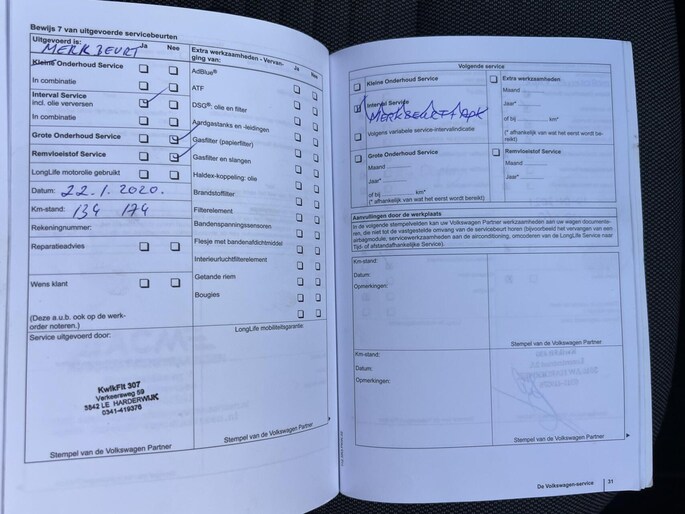 Bewijs 7 van uitgevoerde servicebeurten
Uitgevoerd is: Ja Nee
MERKBEURT
Kleine Onderhoud Service
In combinatie
Interval Service
incl. olie verversen
In combinatie
Grote Onderhoud Service
Remvloeistof Service
LongLife motorolie gebruikt
Datum: 22.1.2020.
Km-stand: 134 174
Rekeningnummer:
Reparatieadvies
Wens klant
(Deze a.u.b. ook op de werk-
order noteren.)
Service uitgevoerd door:
KwikFit 307
Verkeersweg 59
3842 LE HARDERWIJK
0341-419376
Stempel van de Volkswagen Partner
Extra werkzaamheden - Vervan-
ging van: Ja Nee
AdBlue®
ATF
DSG®: olie en filter
Aardgastanks en -leidingen
Gasfilter (papierfilter)
Gasfilter en slangen
Haldex-koppeling: olie
Brandstoffilter
Filterelement
Bandenspanningssensoren
Flesje met bandenafdichtmiddel
Interieurluchtfilterelement
Getande riem
Bougies
LongLife mobiliteitsgarantie:
Stempel van de Volkswagen Partner
Volgende service
Kleine Onderhoud Service
Interval Service
MERKBEURT + APK
Volgens variabele service-intervalindicatie
Grote Onderhoud Service
Maand
Jaar*
of bij km*
(* afhankelijk van wat het eerst wordt bereikt)
Extra werkzaamheden
Maand
Jaar*
of bij km*
(* afhankelijk van wat het eerst wordt be-
reikt)
Remvloeistof Service
Maand
Jaar*
Aanvullingen door de werkplaats
In de volgende stempelvelden kan uw Volkswagen Partner werkzaamheden aan uw wagen documente-
ren, die niet tot de vastgestelde omvang van de servicebeurt horen (bijvoorbeeld het vervangen van een
airbagmodule, servicewerkzaamheden aan de airconditioning, omcoderen van de LongLife Service naar
Tijd- of afstandafhankelijke Service).
Km-stand:
Datum:
Opmerkingen:
Stempel van de Volkswagen Partner
Km-stand:
Datum:
Opmerkingen:
Stempel van de Volkswagen Partner
De Volkswagen-service 31